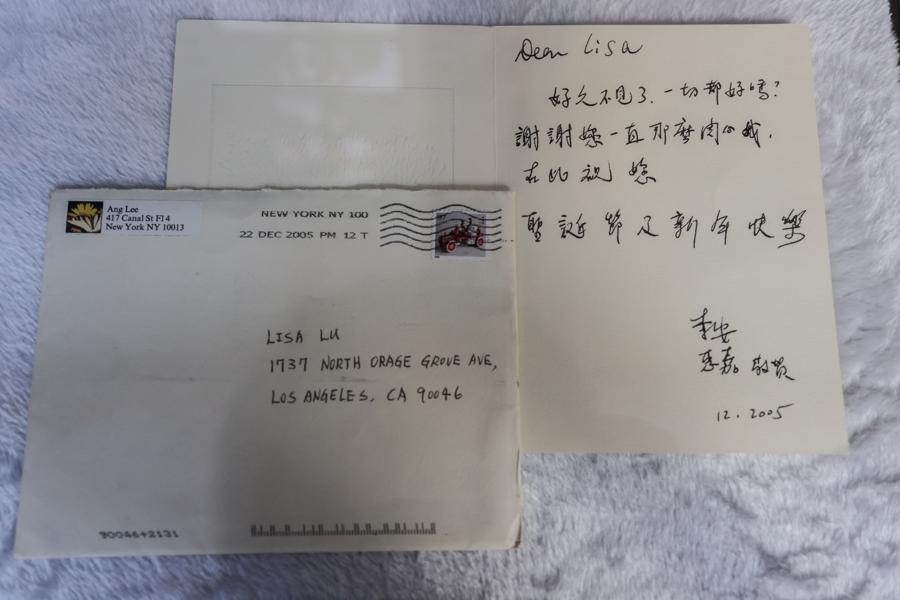 Dear Lisa
好久不見了.一切都好嗎?
謝謝您一直那麼関心我.
在此祝您
聖誕節及新年快樂
李安
惠嘉 敬賀
12.2005
Ang Lee
417 Canal St Fl 4
New York NY 10013
NEW YORK NY 100
22 DEC 2005 PM 12 T
LISA LU
1737 NORTH ORAGE GROVE AVE,
LOS ANGELES, CA 90046
90046+2131